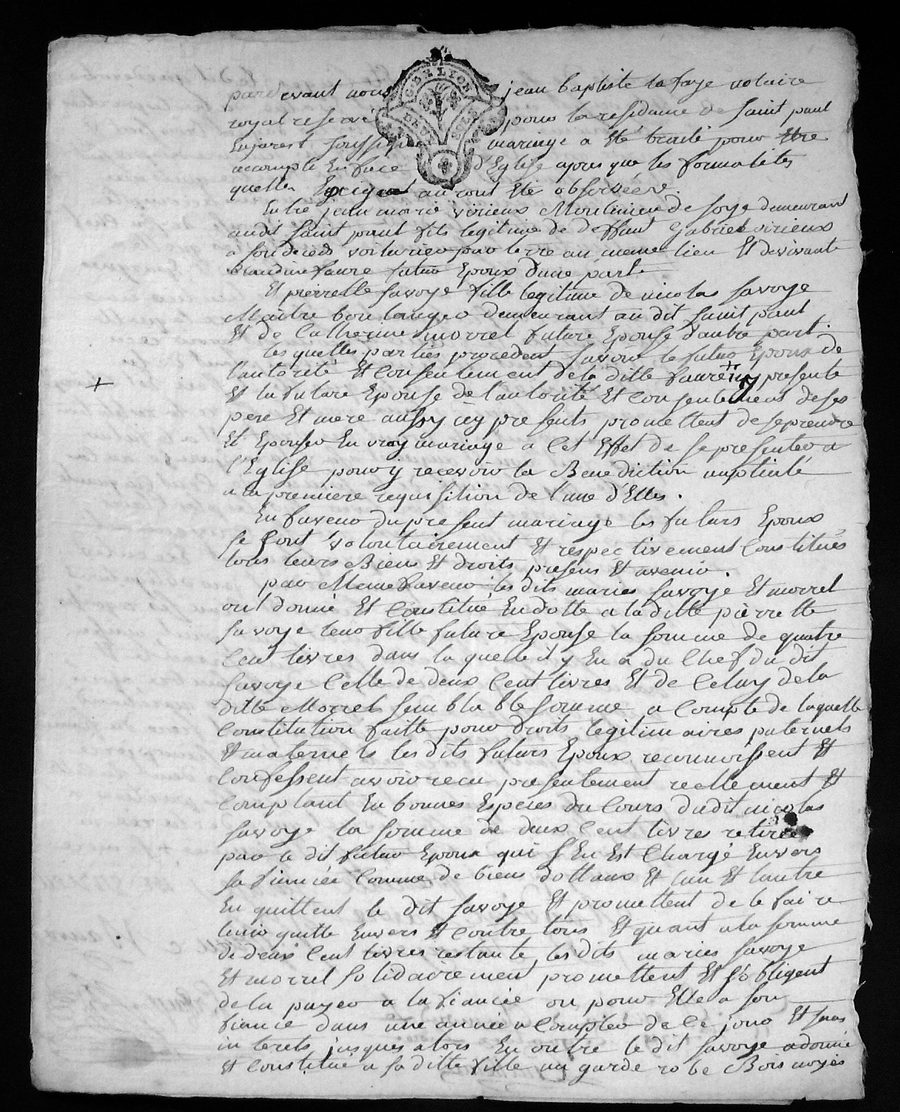 pardevant nous jean baptiste lafaye notaire
royal reservé pour la residance de saint paul
Enjarest soussigné mariage a Eté traité pour Etre
accomply En face d'Eglise apres que les formalités
quelles Exigent auront Eté observées.
Entre jean marie virieux Moulinier de soye demeurant
audit saint paul fils legitime de deffunt gabriel virieux
voiturier par terre au meme lieu Et de vivant
Claudine faure futur Epoux d'une part
Et pierrette savoye fille legitime de nicolas savoye
Maitre boulanger demeurant au dit saint paul
Et de Catherine morrel future Epouse d'autre part.
lesquelles parties procedent savoir le futur Epoux de
l'autorité Et Consentement de la ditte faure icy presente
Et la future Epouse de l'autorité Et consentement de ses
pere Et mere aussy icy presents promettent de se prendre
Et Epouser En vray mariage a Cet Effet de se presenter a
l'Eglise pour y recevoir la Benediction nuptiale
a la premiere requisition de l'une d'Elles.
En faveur du present mariage les futurs Epoux
se sont volontairement Et respectivement Constitués
tous leurs Biens Et droits presens Et avenir.
par Meme faveur les dits maries savoye Et morrel
ont donné Et Constitué En dotte a la ditte pierrette
savoye leur fille future Epouse la somme de quatre
Cent livres dans laquelle il y En a du Chef du dit
savoye Celle de deux Cent livres Et de Celuy de la
ditte Morrel semblable somme a Compte de laquelle
Constitution faitte pour droits legitimaires paternels
Et maternels les dits futurs Epoux reconnoissent Et
Confessent avoir recu presentement reellement Et
Comptant En bonnes Especes du Cours dudit nicolas
savoye la somme de deux Cent livres retirée
par le dit futur Epoux qui s'En Est Chargé Envers
sa fiancée Comme de biens dottaux Et l'un Et l'autre
En quittent le dit savoye Et promettent de le faire
tenir quitte Envers Et Contre tous Et quant a la somme
de deux Cent livres restante les dits maries savoye
Et morrel solidairement promettent Et s'obligent
de la payer a la fiancée ou pour Elle a son
fiancé dans une année a Compter de Ce jour Et sans
interets jusques alors En outre le dit savoye a donné
Et Constitué a sa ditte fille un garde robe Bois noyer